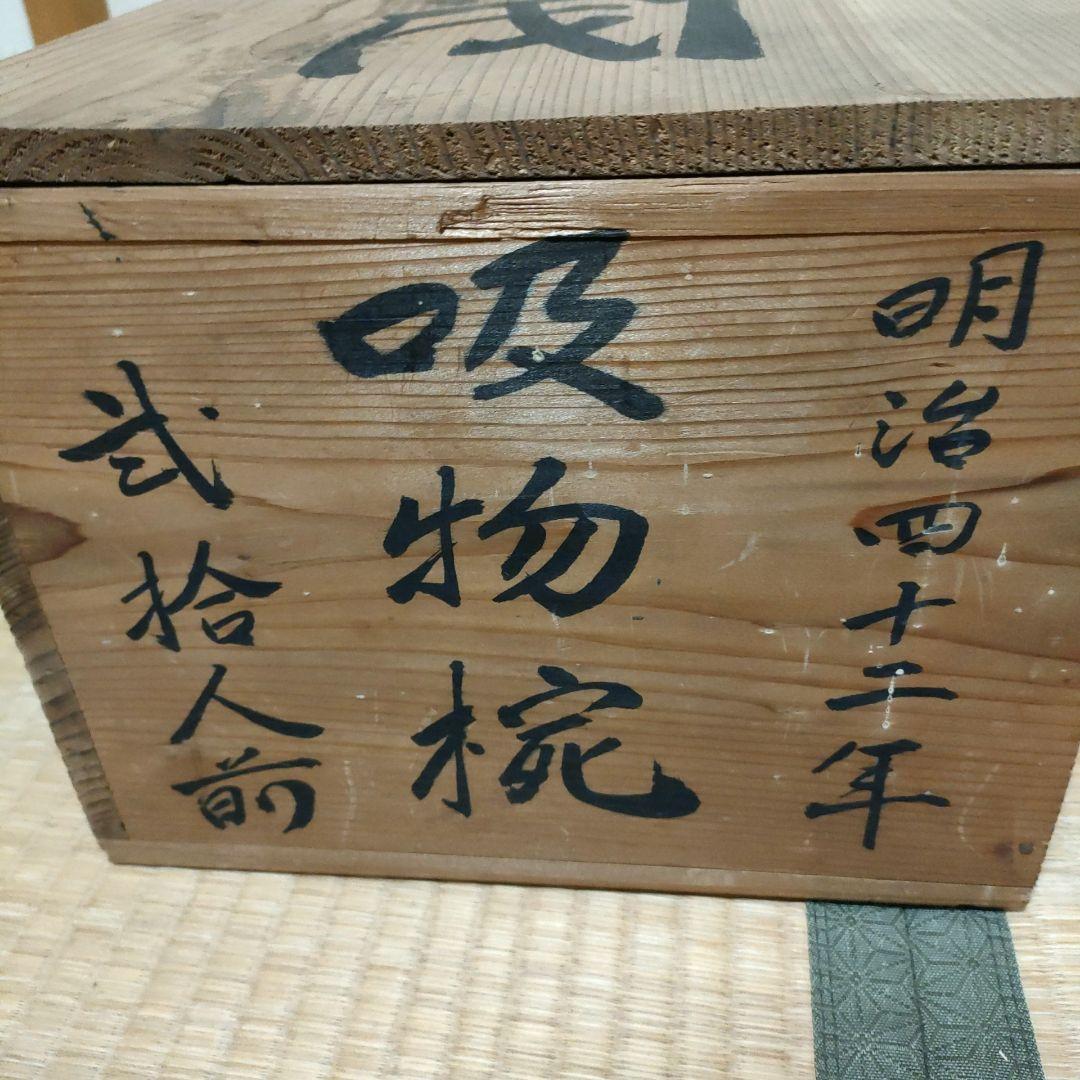 明治四十二年
吸物椀
弐拾人前